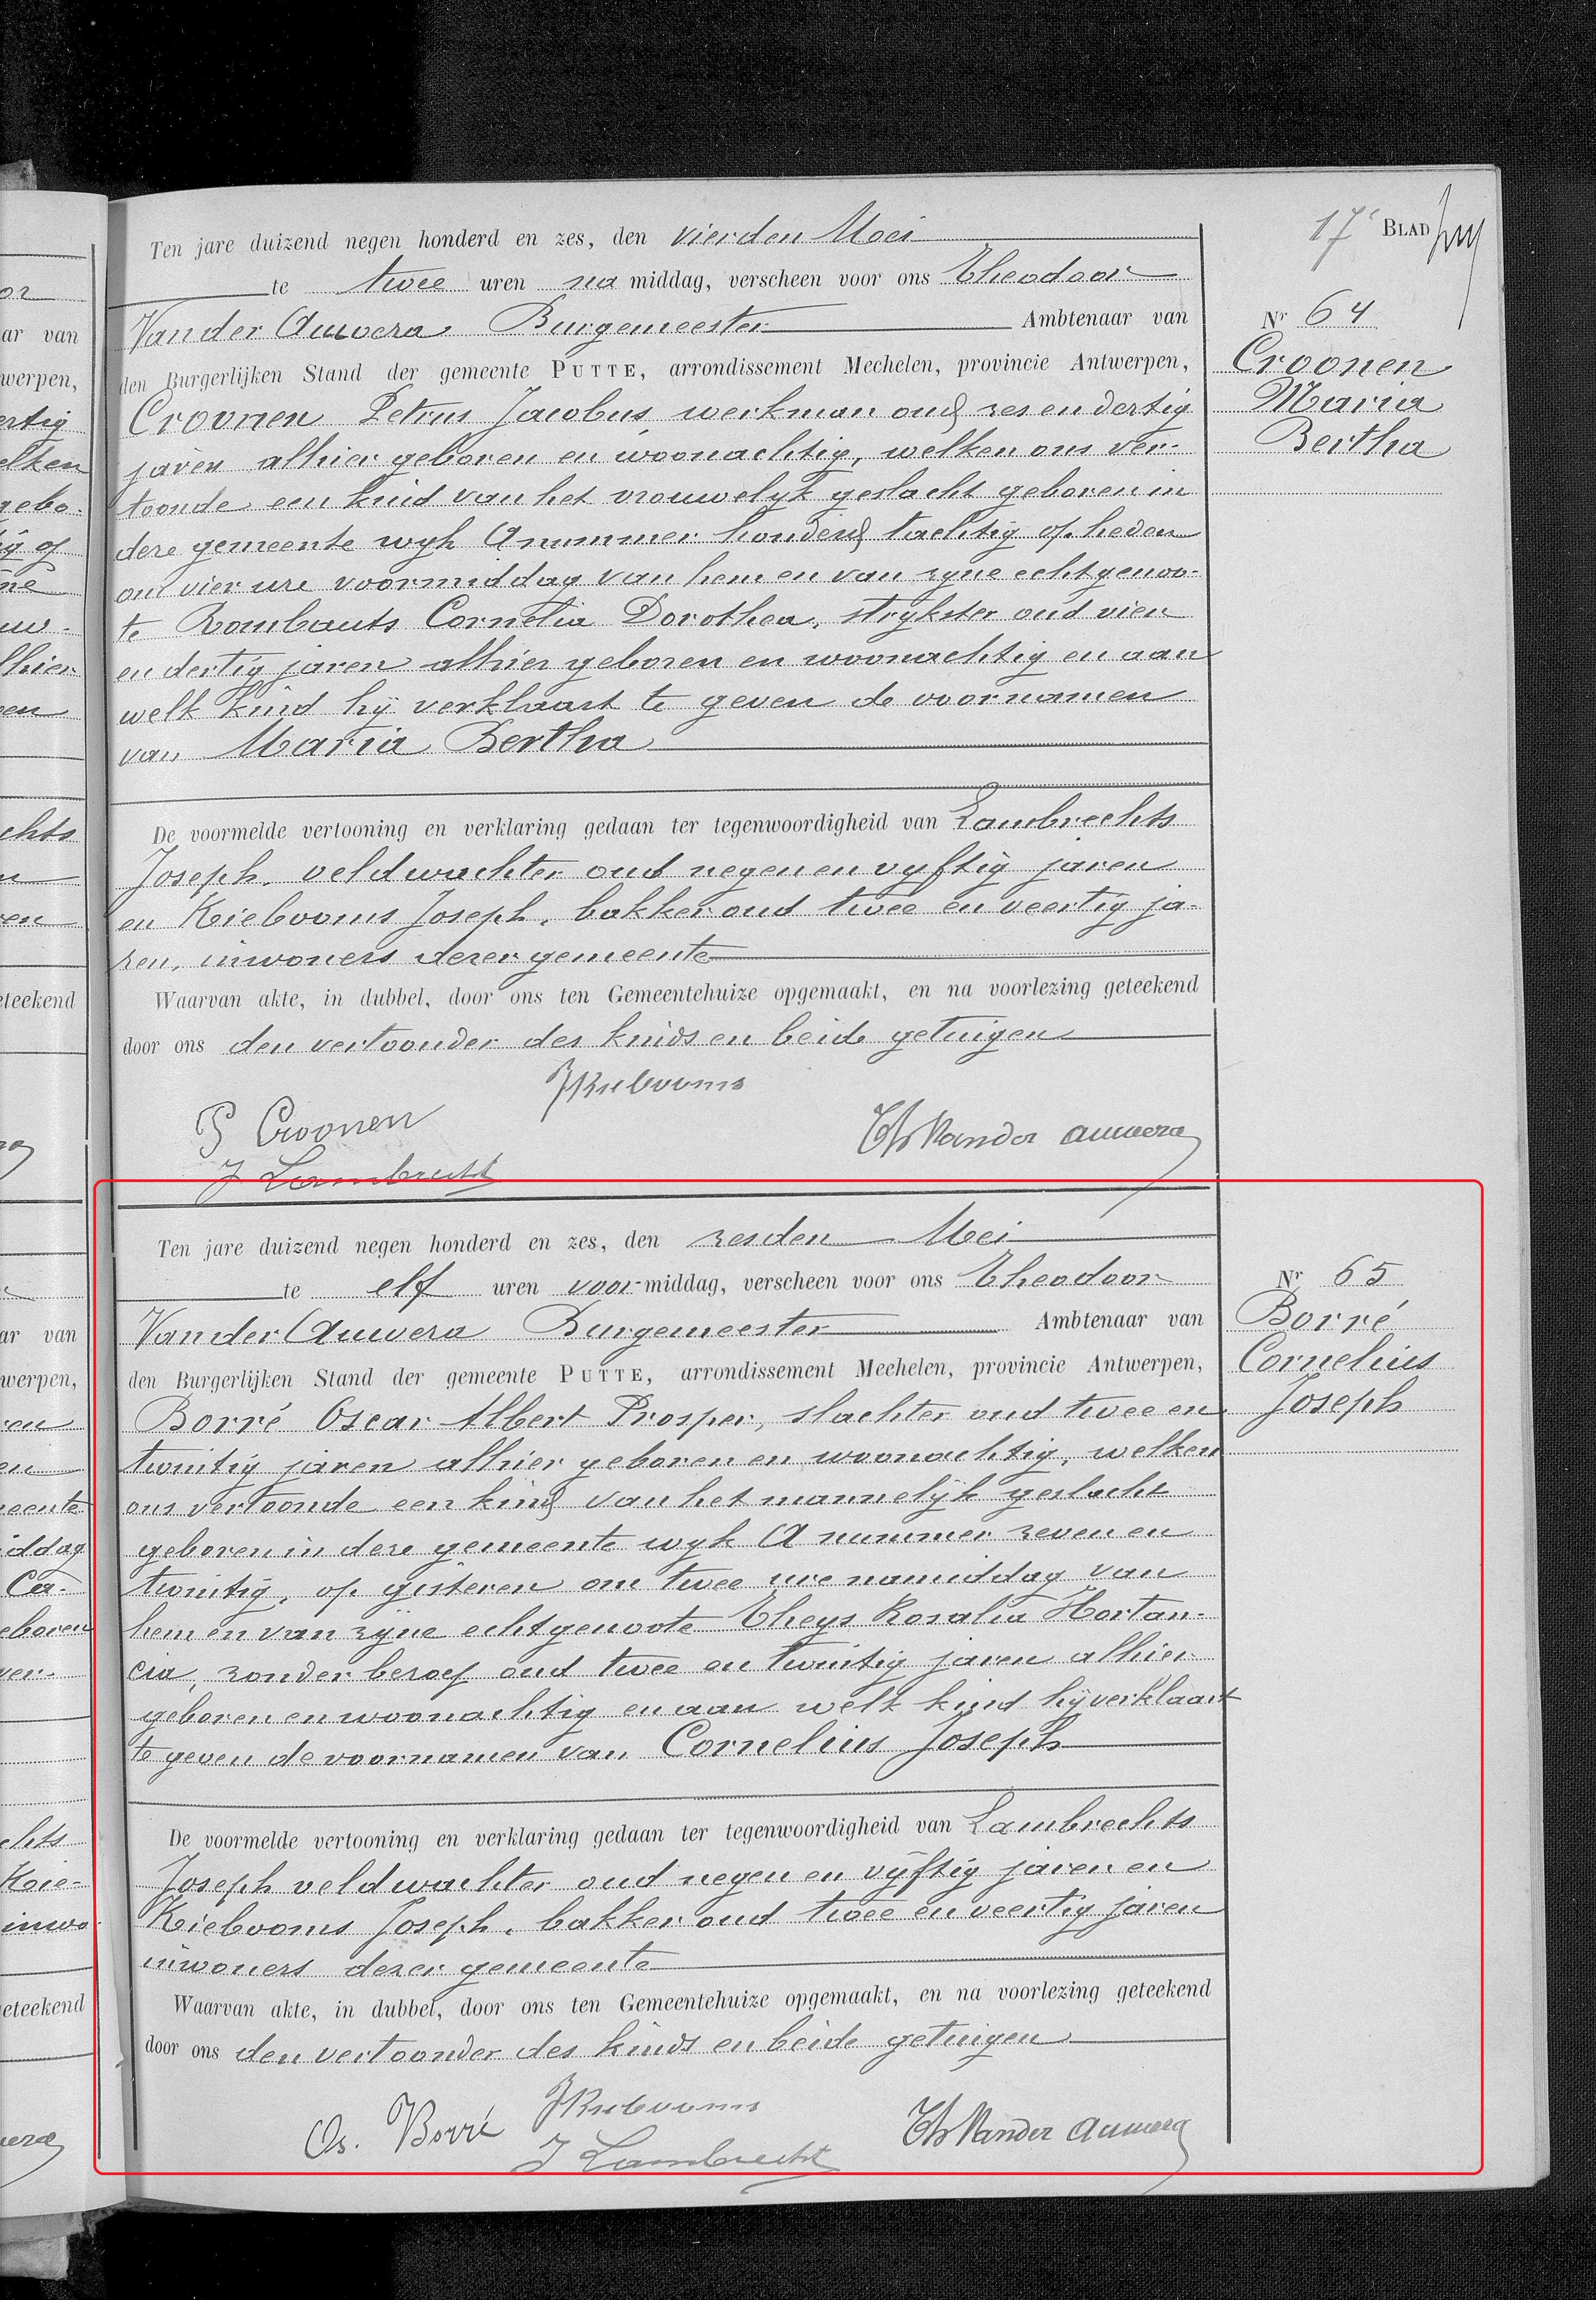 17e BLAD
Ten jare duizend negen honderd en zes, den vierden Mei
te twee uren na middag, verscheen voor ons Theodoor
Van der Auwera Burgemeester Ambtenaar van
den Burgerlijken Stand der gemeente PUTTE, arrondissement Mechelen, provincie Antwerpen,
Croonen Petrus Jacobus, werkman oud zes en dertig
jaren alhier geboren en woonachtig, welken ons ver-
toonde een kind van het vrouwelijk geslacht geboren in
deze gemeente wyk A nummer honderd tachtig op heden
om vier ure voormiddag van hem en van zyne echtgenoo-
te Rombauts Cornelia Dorothea, strykster oud vier
en dertig jaren alhier geboren en woonachtig en aan
welk kind hij verklaart te geven de voornamen
van Maria Bertha
De voormelde vertooning en verklaring gedaan ter tegenwoordigheid van Lambrechts
Joseph, veldwachter oud negen en vyftig jaren
en Kiebooms Joseph, bakker oud twee en veertig ja-
ren, inwoners dezer gemeente
Waarvan akte, in dubbel, door ons ten Gemeentehuize opgemaakt, en na voorlezing geteekend
door ons den vertoonder des kinds en beide getuigen
JKiebooms
P Croonen
Th Vander auwera
J Lambrecht
Nr 64
Croonen
Maria
Bertha
Ten jare duizend negen honderd en zes, den zesden Mei
te elf uren voor middag, verscheen voor ons Theodoor
Van der Auwera Burgemeester Ambtenaar van
den Burgerlijken Stand der gemeente PUTTE, arrondissement Mechelen, provincie Antwerpen,
Borré Oscar Albert Prosper, slachter oud twee en
twintig jaren alhier geboren en woonachtig, welken
ons vertoonde een kind van het mannelijk geslacht
geboren in deze gemeente wyk A nummer zeven en
twintig, op gisteren om twee ure namiddag van
hem en van zijne echtgenoote Theys Rosalia Hortan-
cia, zonder beroep oud twee en twintig jaren alhier
geboren en woonachtig en aan welk kind hij verklaart
te geven de voornamen van Cornelius Joseph
De voormelde vertooning en verklaring gedaan ter tegenwoordigheid van Lambrechts
Joseph veldwachter oud negen en vijftig jaren en
Kiebooms Joseph, bakker oud twee en veertig jaren
inwoners dezer gemeente
Waarvan akte, in dubbel, door ons ten Gemeentehuize opgemaakt, en na voorlezing geteekend
door ons den vertoonder des kinds en beide getuigen
JKiebooms
Os. Borré
Th Vander auwera
J Lambrecht
Nr 65
Borré
Cornelius
Joseph